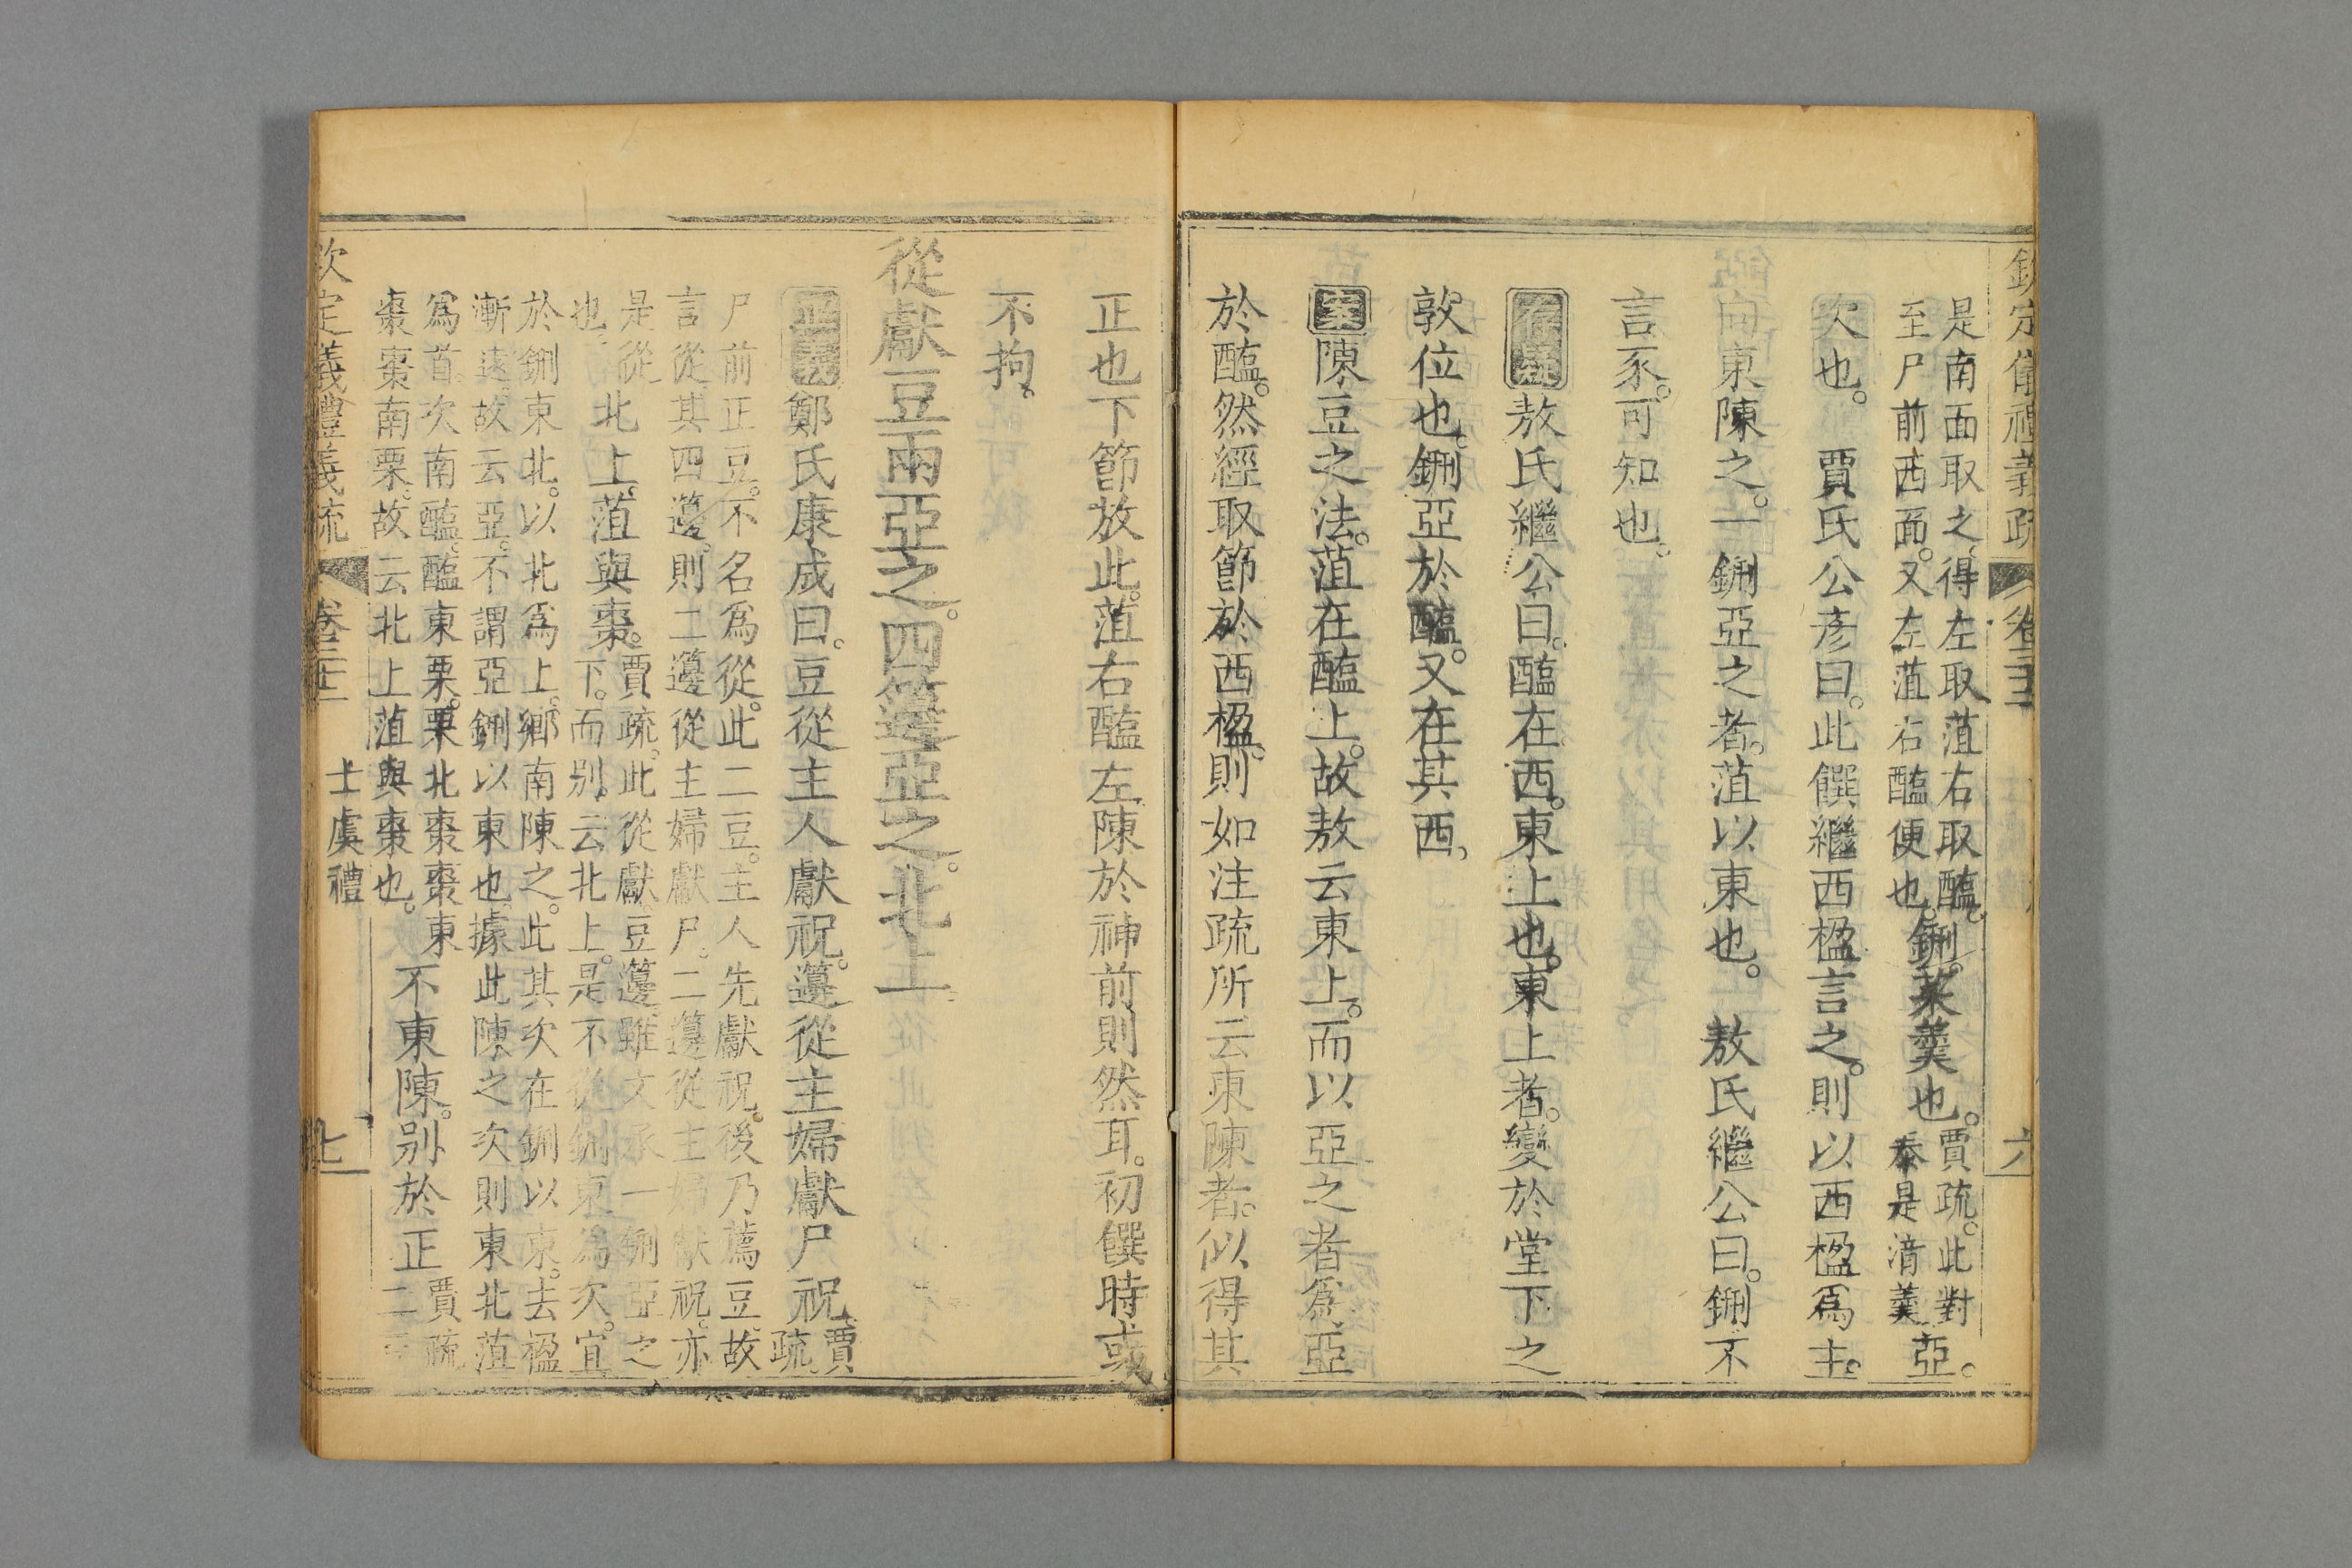 欽定儀禮義疏 卷三十三 六
是南面取之得左取菹右取醢。
至尸前西面。又左菹右醢便也。
鉶。菜羮也。
賈疏。此對
泰是湆羮
亞。
次也。 賈氏公彥曰。此饌繼西楹言之。則以西楹爲主。
向東陳之。一鉶亞之者。菹以東也。 敖氏繼公曰。鉶不
言豕。可知也。
存異敖氏繼公曰。醢在西。東上也。東上者。變於堂下之
敦位也。鉶亞於醢。又在其西、
案陳豆之法。菹在醢上。故敖云東上。而以亞之者爲亞
於醢。然經取節於西楹。則如注疏所云東陳者。似得其
正也下節放此。菹右醢左陳於神前則然耳。初饌時或
不拘。
從獻豆兩亞之。四籩亞之。北上。
正義鄭氏康成曰。豆從主人獻祝。籩從主婦獻尸祝。
賈
疏
尸前正豆。不名爲從。此二豆。主人先獻祝。後乃薦豆。故
言從。其四籩。則二籩從主婦獻尸。二籩從主婦獻祝。亦
是從
也。
北上。菹與棗。
賈疏。此從獻豆籩。雖文承一鉶亞之
下。而别云北上。是不從鉶東爲次。宜
於鉶東北。以北爲上。鄉南陳之。此其次在鉶以東。去楹
漸遠。故云亞。不謂亞鉶以東也。據此陳之次則東北菹
爲首。次南醢。醢東栗。栗北棗。棗東
棗。棗南栗。故云北上菹與棗也。
不東陳。别於正
賈疏
二豆
欽定儀禮義疏 卷三十三 士虞禮 七